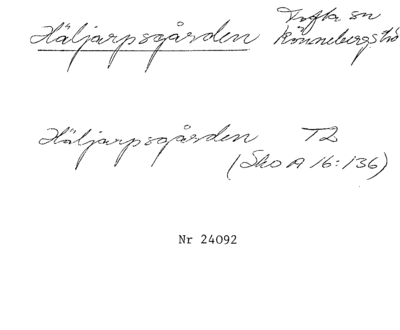 Häljarpsgården Tofta sn
Rönnebergs hd
Häljarpsgården T2
(Sko A 16:136)
Nr 24092